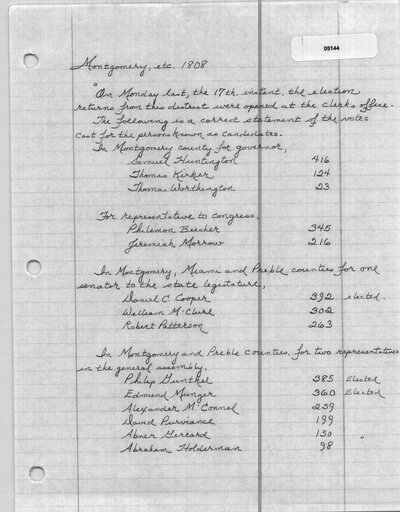 05144
Montgomery, etc. 1808
"On Monday last, the 17th. instant, the election
returns from this district were opened at the Clerks office.
The following is a correct statement of the votes
cast for the persons known as candidates.
In Montgomery county for governor,
Samuel Huntington 416
Thomas Kirker 124
Thomas Worthington 23
For representative to congress,
Philemon Beecher 345
Jeremiah Morrow 216
In Montgomery, Miami and Preble counties for one
senator to the state legislature,
Daniel C Cooper 392 elected.
William McClure 302
Robert Patterson 263
In Montgomery and Preble Counties, for two representatives
in the general assembly.
Philip Gunckel 385 Elected
Edmund Munger 360 Elected
Alexander McConnel 259
David Purviance 199
Abner Gerrard 150 "
Abraham Holderman 98